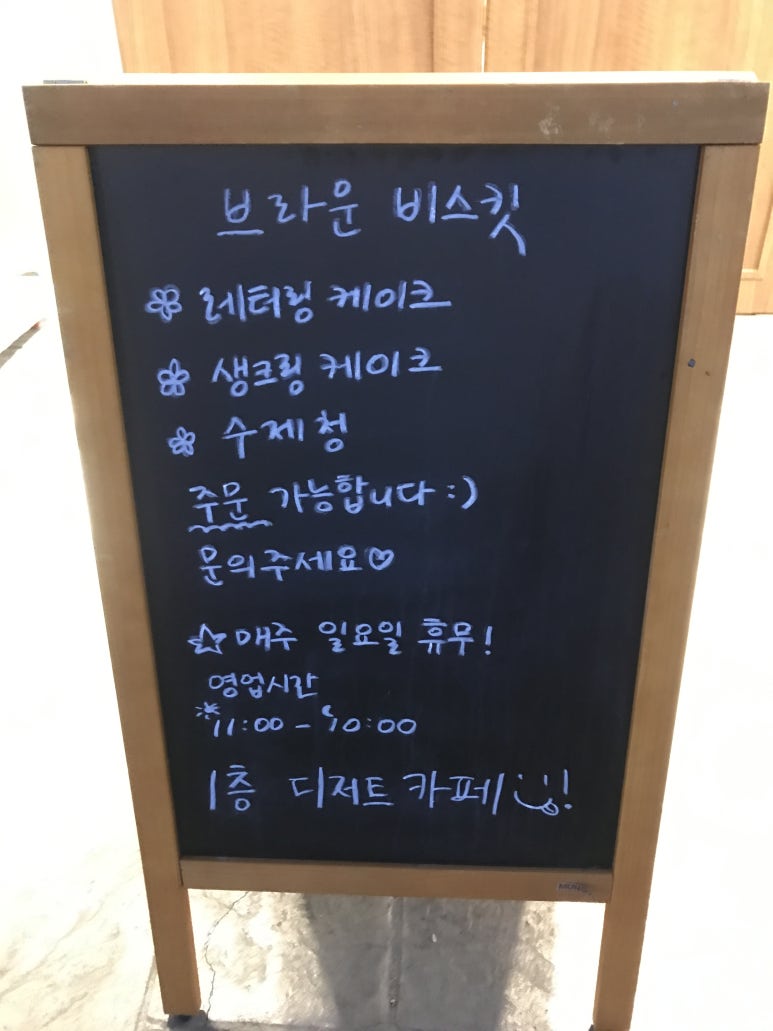 브라운 비스킷
레터링 케이크
생크림 케이크
수제청
주문 가능합니다 :)
문의주세요♡
☆매주 일요일 휴무!
영업시간
11:00 - 10:00
1층 디저트 카페!